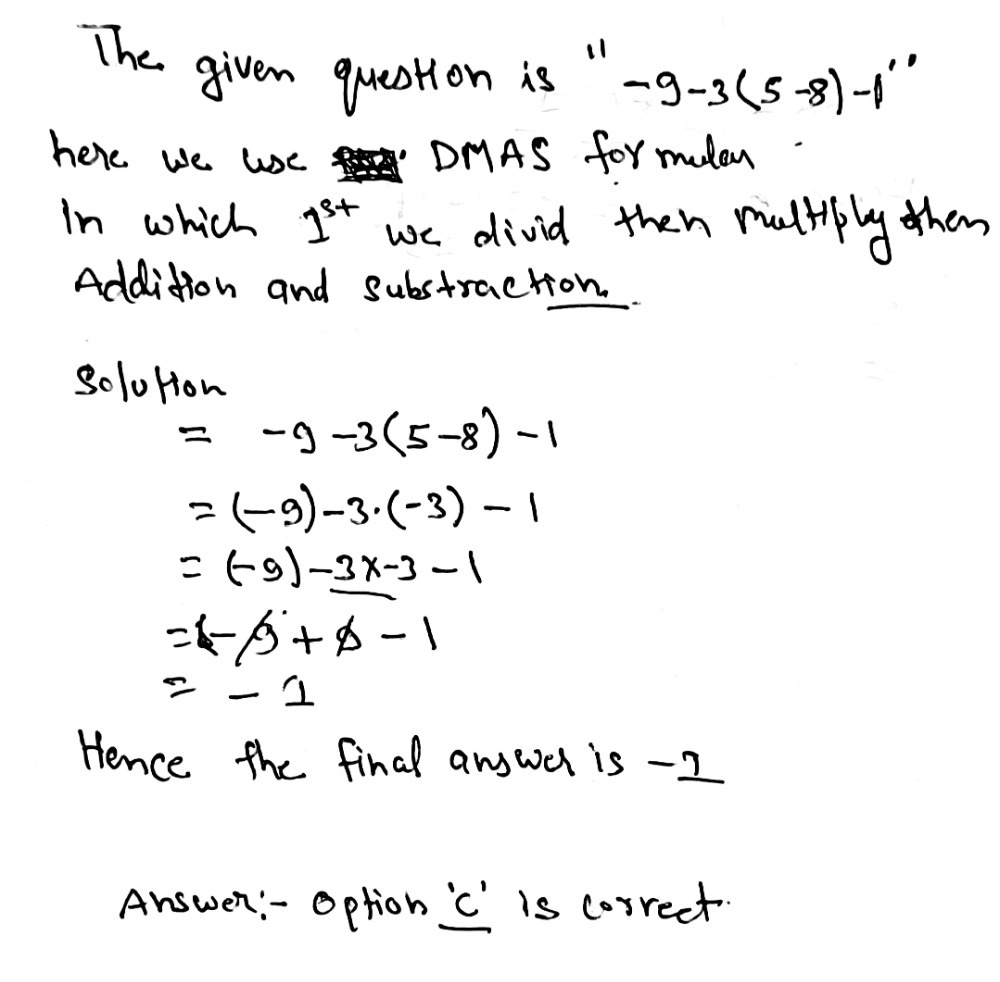 The given question is "-9-3(5-8)-1"
here we use DMAS formulan
In which 1st we divid then multiply then
Addition and substraction.
Solution
= -9-3(5-8)-1
= (-9)-3.(-3)-1
= (-9)-3x-3-1
= -9+9-1
= -1
Hence the final answer is -1
Answer:- Option 'c' is correct.